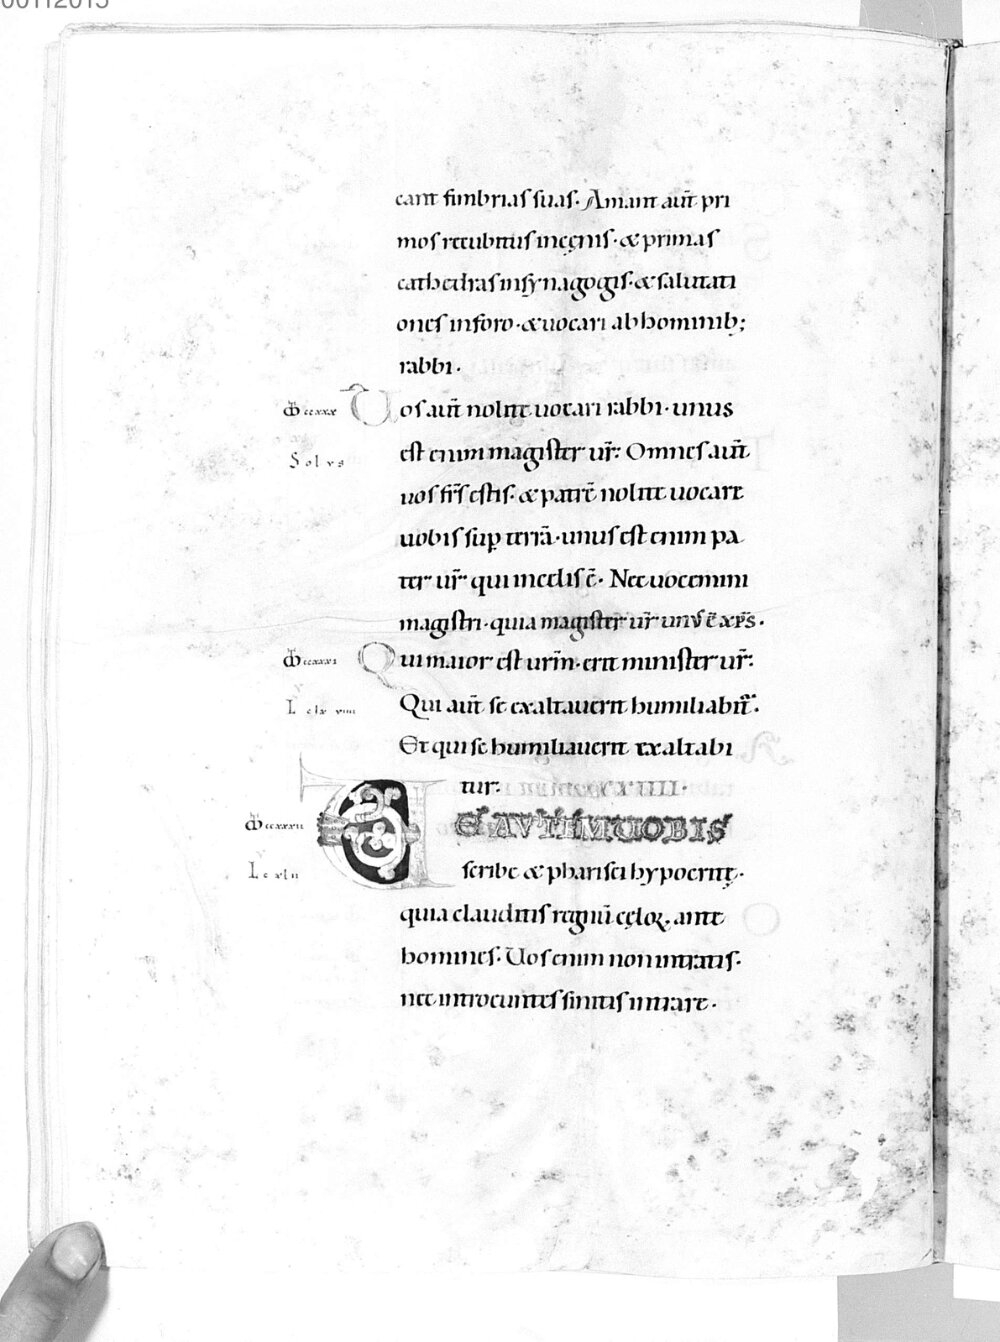 00112015
cant fimbrias suas. Amant aut̄ pri
mos recubitus in cęnis. & primas
cathedras in synagogis. & salutati
ones in foro. & uocari ab hominib;
rabbi.
Uos aut̄ nolite uocari rabbi. unus
M ccxxx
est enim magister ur̄. Omnes aut̄
Solus
uos fr̄s estis. & patrē nolite uocare
uobis sup terrā. unus est enim pa
ter ur̄ qui in cęlis ē. Nec uocemini
magistri. quia magister ur̄ unus ē xp̄s.
Qui maior est urīm. erit minister ur̄.
M ccxxxi
Qui aut̄ se exaltauerit humiliabit̄.
L clx viiii
Et qui se humiliauerit exaltabi
tur.
UE AUTEM UOBIS
M ccxxxii
scribę & pharisei hypocritę.
L cxlii
quia clauditis regnū cęloꝝ. ante
homines. Uos enim non intratis.
nec introeuntes sinitis intrare.